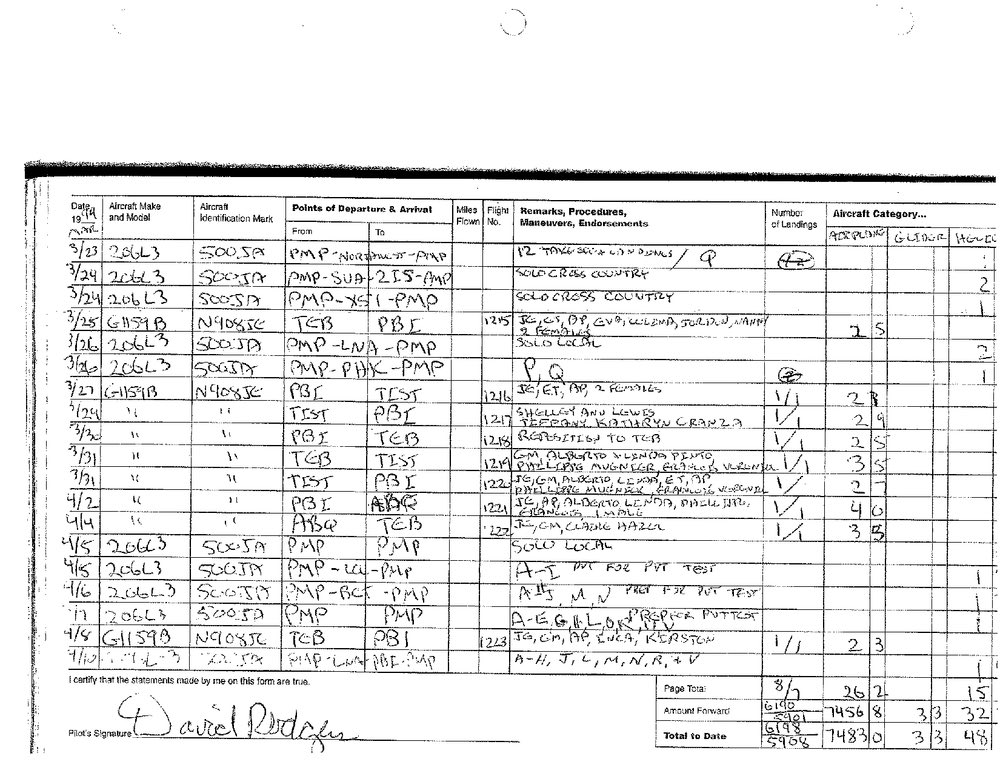 Date Aircraft Make and Model Aircraft Identification Mark Points of Departure & Arrival Miles Flown Flight No. Remarks, Procedures, Maneuvers, Endorsements Number of Landings Aircraft Category...
19 99 From To AIRPLANE GLIDER
MAR
3/23 206L3 500JA PMP-NORTHWEST-PMP / Q
3/24 206L3 500JA PMP-SUA-2IS-PMP SOLO CROSS COUNTRY 2
3/24 206L3 500JA PMP-X51-PMP SOLO CROSS COUNTRY 1
3/25 G1159B N908JE TEB PBI 1215 2 FEMALES 2 5
3/26 206L3 500JA PMP-LNA-PMP SOLO LOCAL 2
3/26 206L3 500JA PMP-PHK-PMP P, Q 1
3/27 G1159B N908JE PBI TIST 1216 JE, ET, AP, 2 FEMALES 1/1 2
3/29 " " TIST PBI 1217 SHELLEY ANN LEWIS 1/1 2 9
3/30 " " PBI TEB 1218 REPOSITION TO TEB 1/1 2 5
3/31 " " TEB TIST 1219 GM, ALBERTO & LINDA PINTO, 1/1 3 5
3/31 " " TIST PBI 1220 JE, GM, ALBERTO, LINDA, ET, AP, 1/1 2 7
4/2 " " PBI ABQ 1221 JE, AP, ALBERTO, LINDA, 1 MALE 1/1 4 0
4/4 " " ABQ TEB 1222 JE, GM, CLAUDE HAZEL 1/1 3
4/5 206L3 500JA PMP PMP SOLO LOCAL
4/5 206L3 500JA A-I PVT FOR PVT TEST 1
4/6 206L3 500JA PMP-BCT-PMP PREP FOR PVT TEST 1
206L3 500JA PMP PMP PREP FOR PVT TEST
4/8 G1159B N908JE TEB PBI 1223 JE, GM, AP, KIRSTEN 1/1 2 3
4/10 A-H, J, L, M, N, R, + V 1
I certify that the statements made by me on this form are true.
Page Total 8/7 26 2 15
Amount Forward 6190 5901 7456 8 3 3 32
Total to Date 6198 5908 7483 0 3 3 48
Pilot's Signature David Rodgers